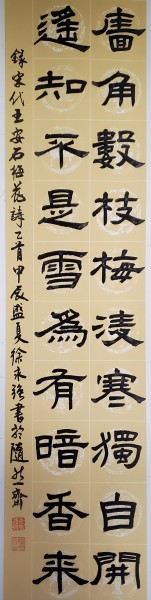 牆角數枝梅淩寒獨自開
遙知不是雪為有暗香来
録宋代王安石梅花詩一首甲辰盛夏徐永强書於隨然齋